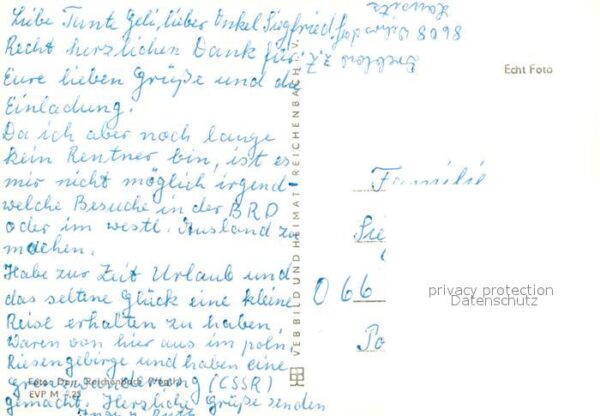 Liebe Tante Geli, lieber Onkel Siegfried,
Recht herzlichen Dank für
Eure lieben Grüße und die
Einladung.
Da ich aber noch lange
kein Rentner bin, ist es
mir nicht möglich irgend-
welche Besuche in der BRD
oder im westl. Ausland zu
machen.
Habe zur Zeit Urlaub und
das seltene Glück eine kleine
Reise erhalten zu haben,
Waren von hier aus im poln.
Riesengebirge und haben eine
grenzwanderung (CSSR)
gemacht. Herzliche Grüße senden
Foto: Darr, Reichenbach (Vogtl.)
EVP M -,25
VEB BILD UND HEIMAT REICHENBACH I. V.
8608
z. Z.
Echt Foto
Familie
Sie
066
Po
privacy protection
Datenschutz